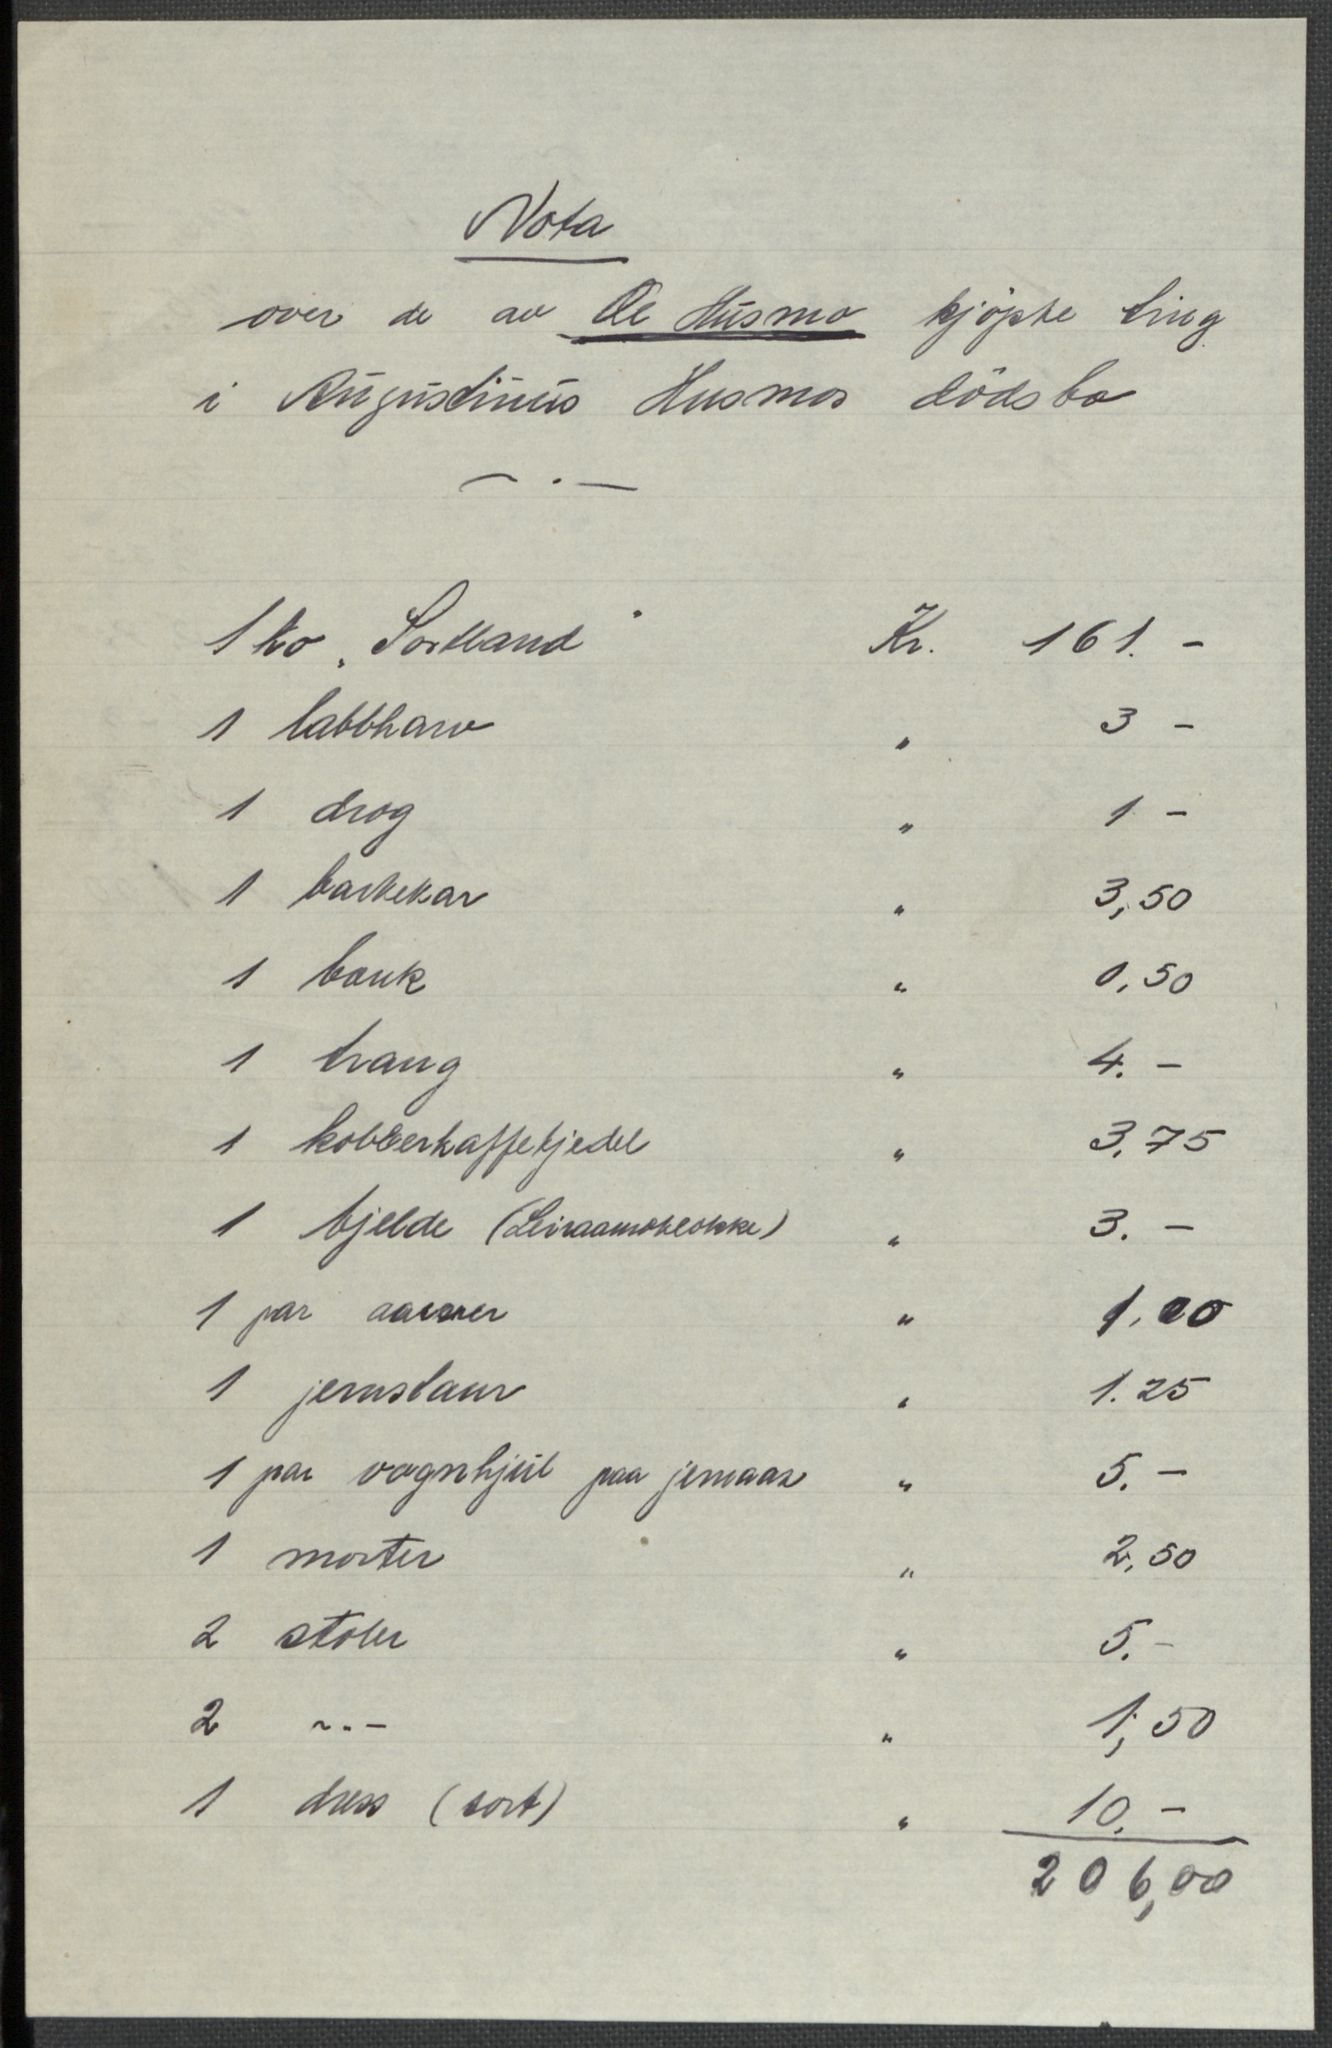 Nota
over de av Ole Husmo kjöpte ting
i Augustinus Husmos dödsbo
1 ko „Sortland"
Kr. 161. -
1 labbharv " 3 -
1 drog " 1 -
1 barkekar " 3,50
1 bank " 0,50
1 traug " 4. -
1 kobberkaffekjedel " 3.75
1 bjelde (Leiraamoklokke) " 3. -
1 par aarer " 1.00
1 jernstaur " 1.25
1 par vognhjul paa jernaas " 5. -
1 morter " 2,50
2 stoler " 5. -
2 -..- " 1,50
1 dress (sort) " 10. -
206,00